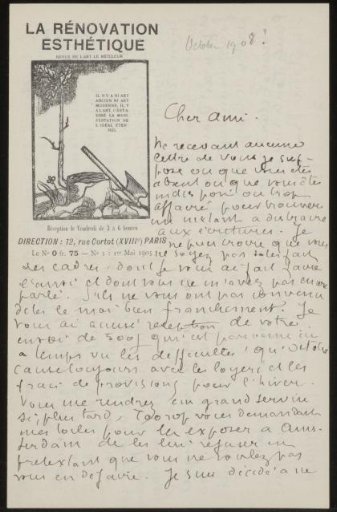 LA RÉNOVATION
ESTHÉTIQUE
REVUE DE L'ART LE MEILLEUR
Octobre 1908?
IL N'Y A NI ART
ANCIEN NI ART
MODERNE, IL Y
A L'ART, C'EST-À-
DIRE LA MANI-
FESTATION DE
L'IDÉAL ÉTER-
NEL.
Réception le Vendredi de 3 à 6 heures
DIRECTION : 12, rue Cortot (XVIIIe) PARIS
Le No 0 fr. 75 — No 1 : 1er Mai 1905
Cher Ami.
Ne recevant aucune
lettre de vous je sup-
pose ou que vous êtes
absent ou que vous êtes
indisposé ou trop
affairé pour trouver
un instant à
aux écritures. Je
ne puis croire que vous
ne soyez pas satisfait
des cadres dont je vous ai fait faire
l'envoi et dont vous ne m'avez pas encore
parlé. S'ils ne vous ont pas convenu
dites le moi bien franchement. Je
vous ai accusé réception de votre
envoi de 500f qui est parvenu
à temps vu les difficultés qu'octobre
cause toujours avec le loyer et les
frais de provisions pour l'hiver.
Vous me rendrez un grand service
si, plus tard, Toorop vous demandait
mes toiles pour les exposer à Ams-
terdam de les lui refuser en
prétextant que vous ne voulez pas
vous en défaire. Je suis décidé à ne